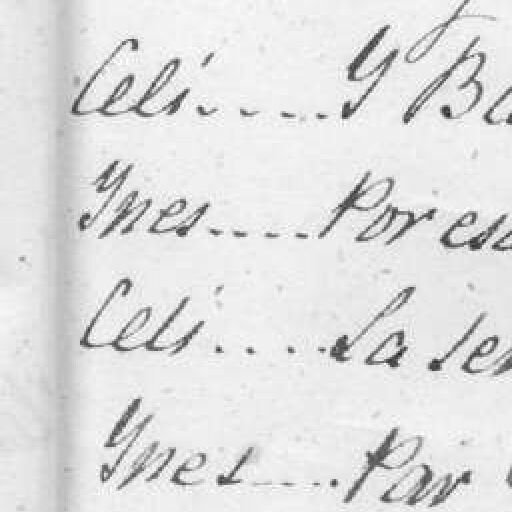 Celi.....Y Ba
Ynes.....Por esa
Celi.....La sen
Ynes.....Par